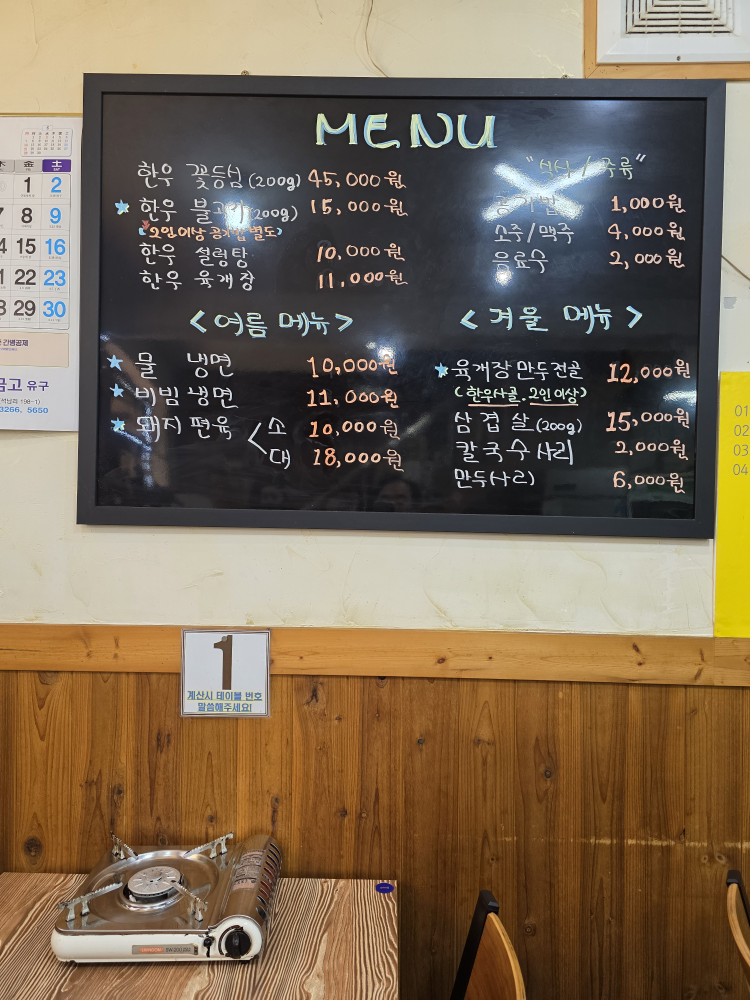 MENU
한우 꽃등심 (200g) 45,000원
한우 불고기 (200g) 15,000원
(2인이상 공기밥 별도)
한우 설렁탕 10,000원
한우 육개장 11,000원
"식사 / 주류"
공기밥 1,000원
소주/맥주 4,000원
음료수 2,000원
<여름 메뉴>
물 냉면 10,000원
비빔냉면 11,000원
돼지편육 소 10,000원
대 18,000원
<겨울 메뉴>
육개장만두전골 12,000원
(한우사골. 2인이상)
삼겹살 (200g) 15,000원
칼국수사리 2,000원
만두(사리) 6,000원
金 土
1 2
8 9
15 16
22 23
29 30
금고 유구
3266, 5650
01
02
03
04
1
계산시 테이블 번호
말씀해주세요!